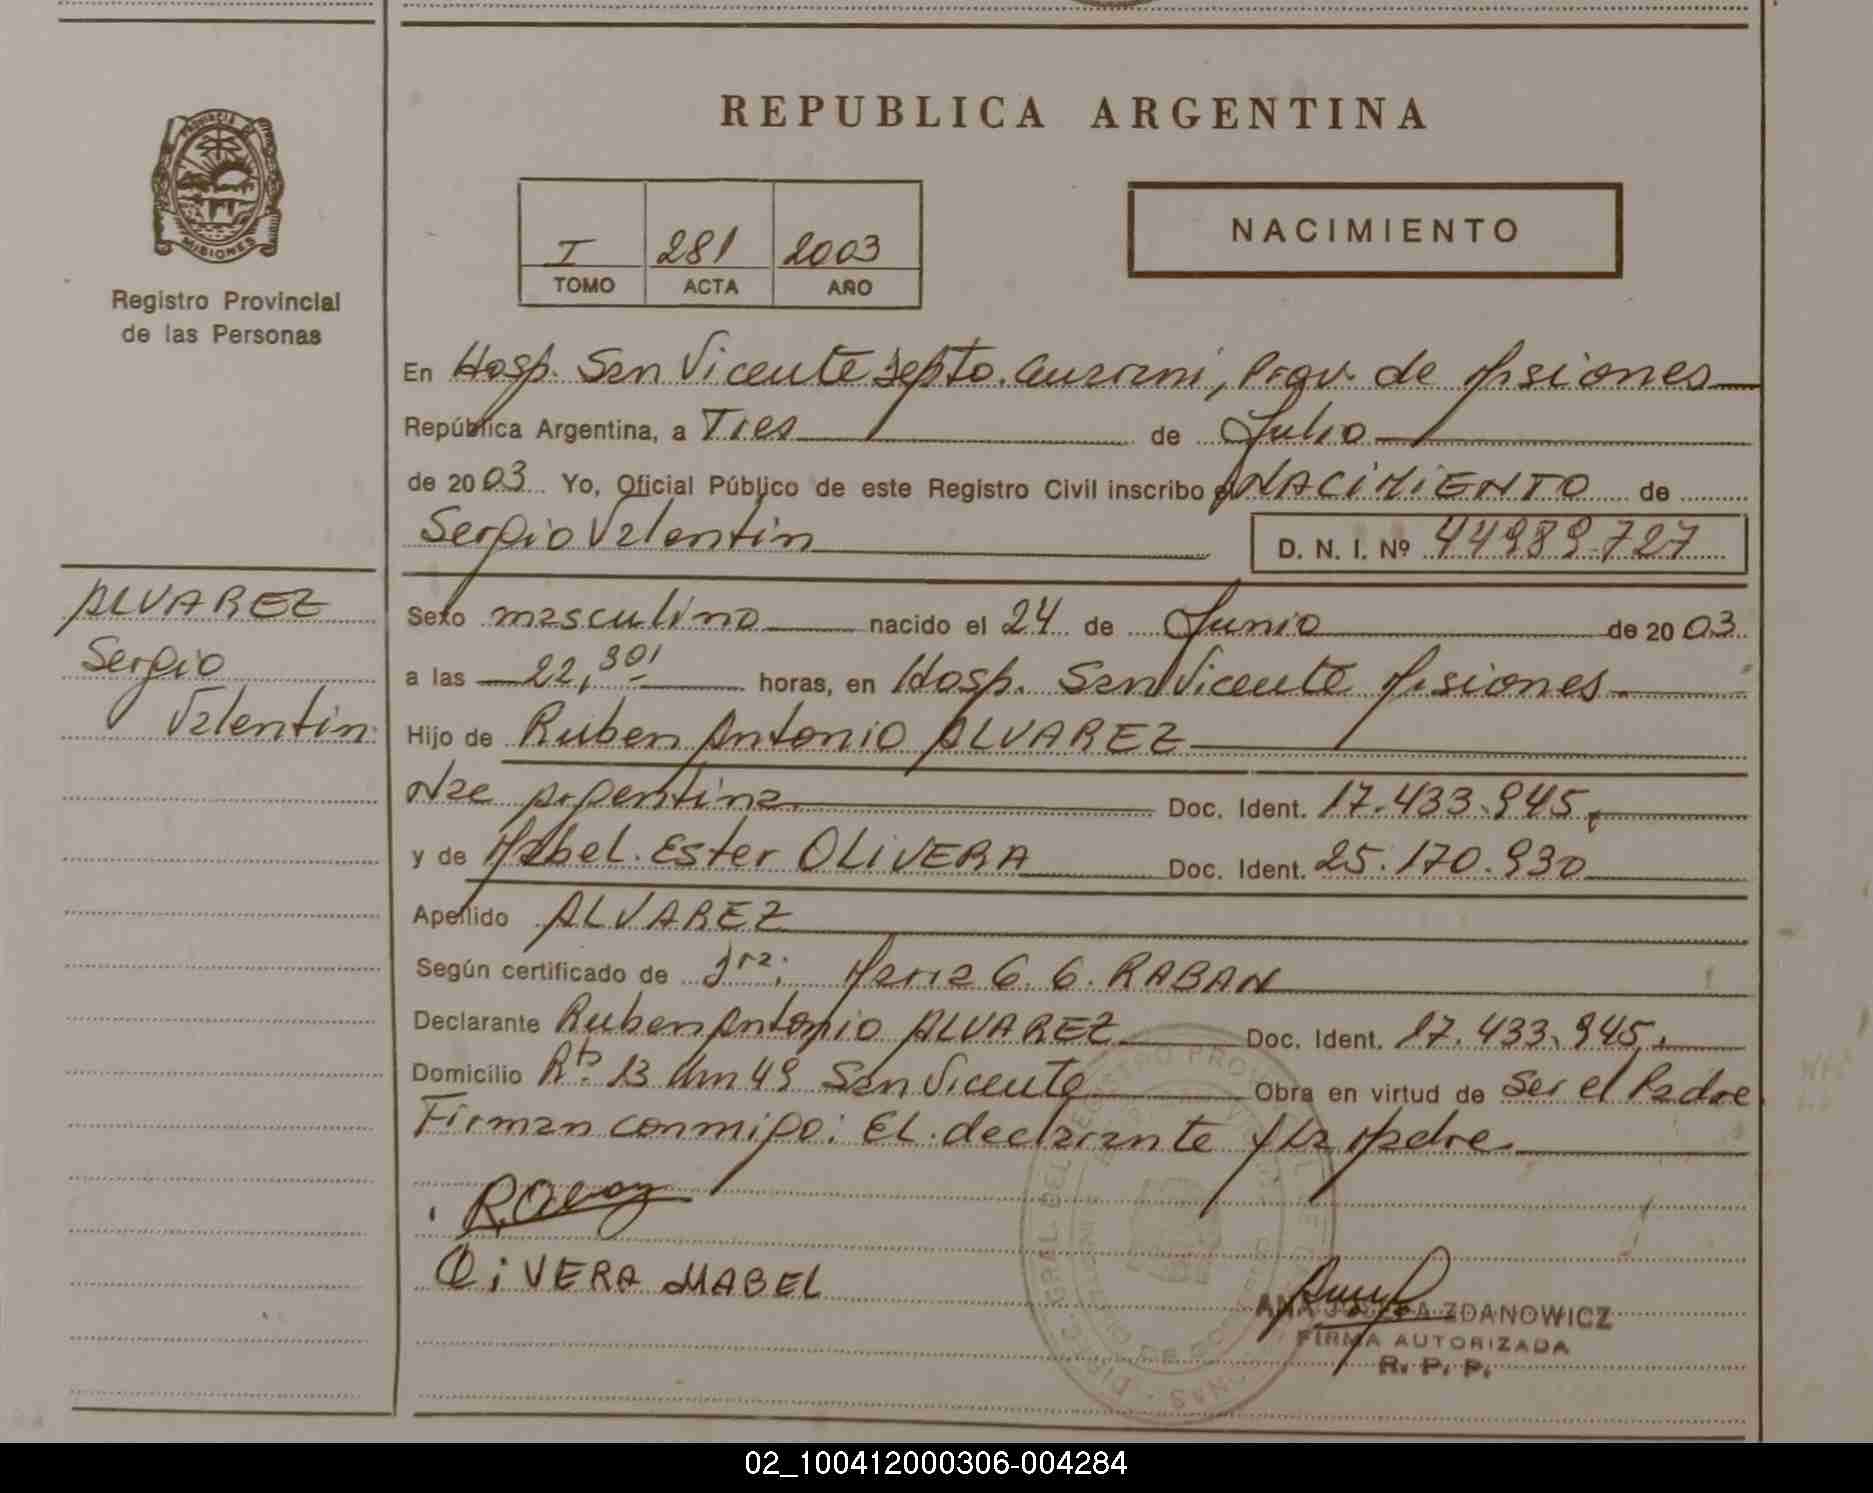 REPUBLICA ARGENTINA
PROVINCIA DE
MISIONES
Registro Provincial
de las Personas
I 281 2003
TOMO ACTA AÑO
NACIMIENTO
En Hosp. San Vicente Depto. Guaraní, Prov. de Misiones
República Argentina, a Tres de Julio
de 2003 Yo, Oficial Público de este Registro Civil inscribo el NACIMIENTO de
Sergio Valentin D. N. I. Nº 44989.727
ALVAREZ
Sergio
Valentin
Sexo masculino nacido el 24 de Junio de 2003
a las 22,30' horas, en Hosp. San Vicente Misiones
Hijo de Ruben Antonio ALVAREZ
Nac Argentina Doc. Ident. 17.433.945,
y de Mabel Ester OLIVERA Doc. Ident. 25.170.930
Apellido ALVAREZ
Según certificado de Dra: Maria G. G. RABAN
Declarante Ruben Antonio ALVAREZ Doc. Ident. 17.433.945,
Domicilio Rta. 13 Km 49 San Vicente Obra en virtud de Ser el Padre
Firman conmigo: El declarante y La Madre
OLiVERA MABEL
ZDANOWICZ
FIRMA AUTORIZADA
R. P. P.
02_100412000306-004284